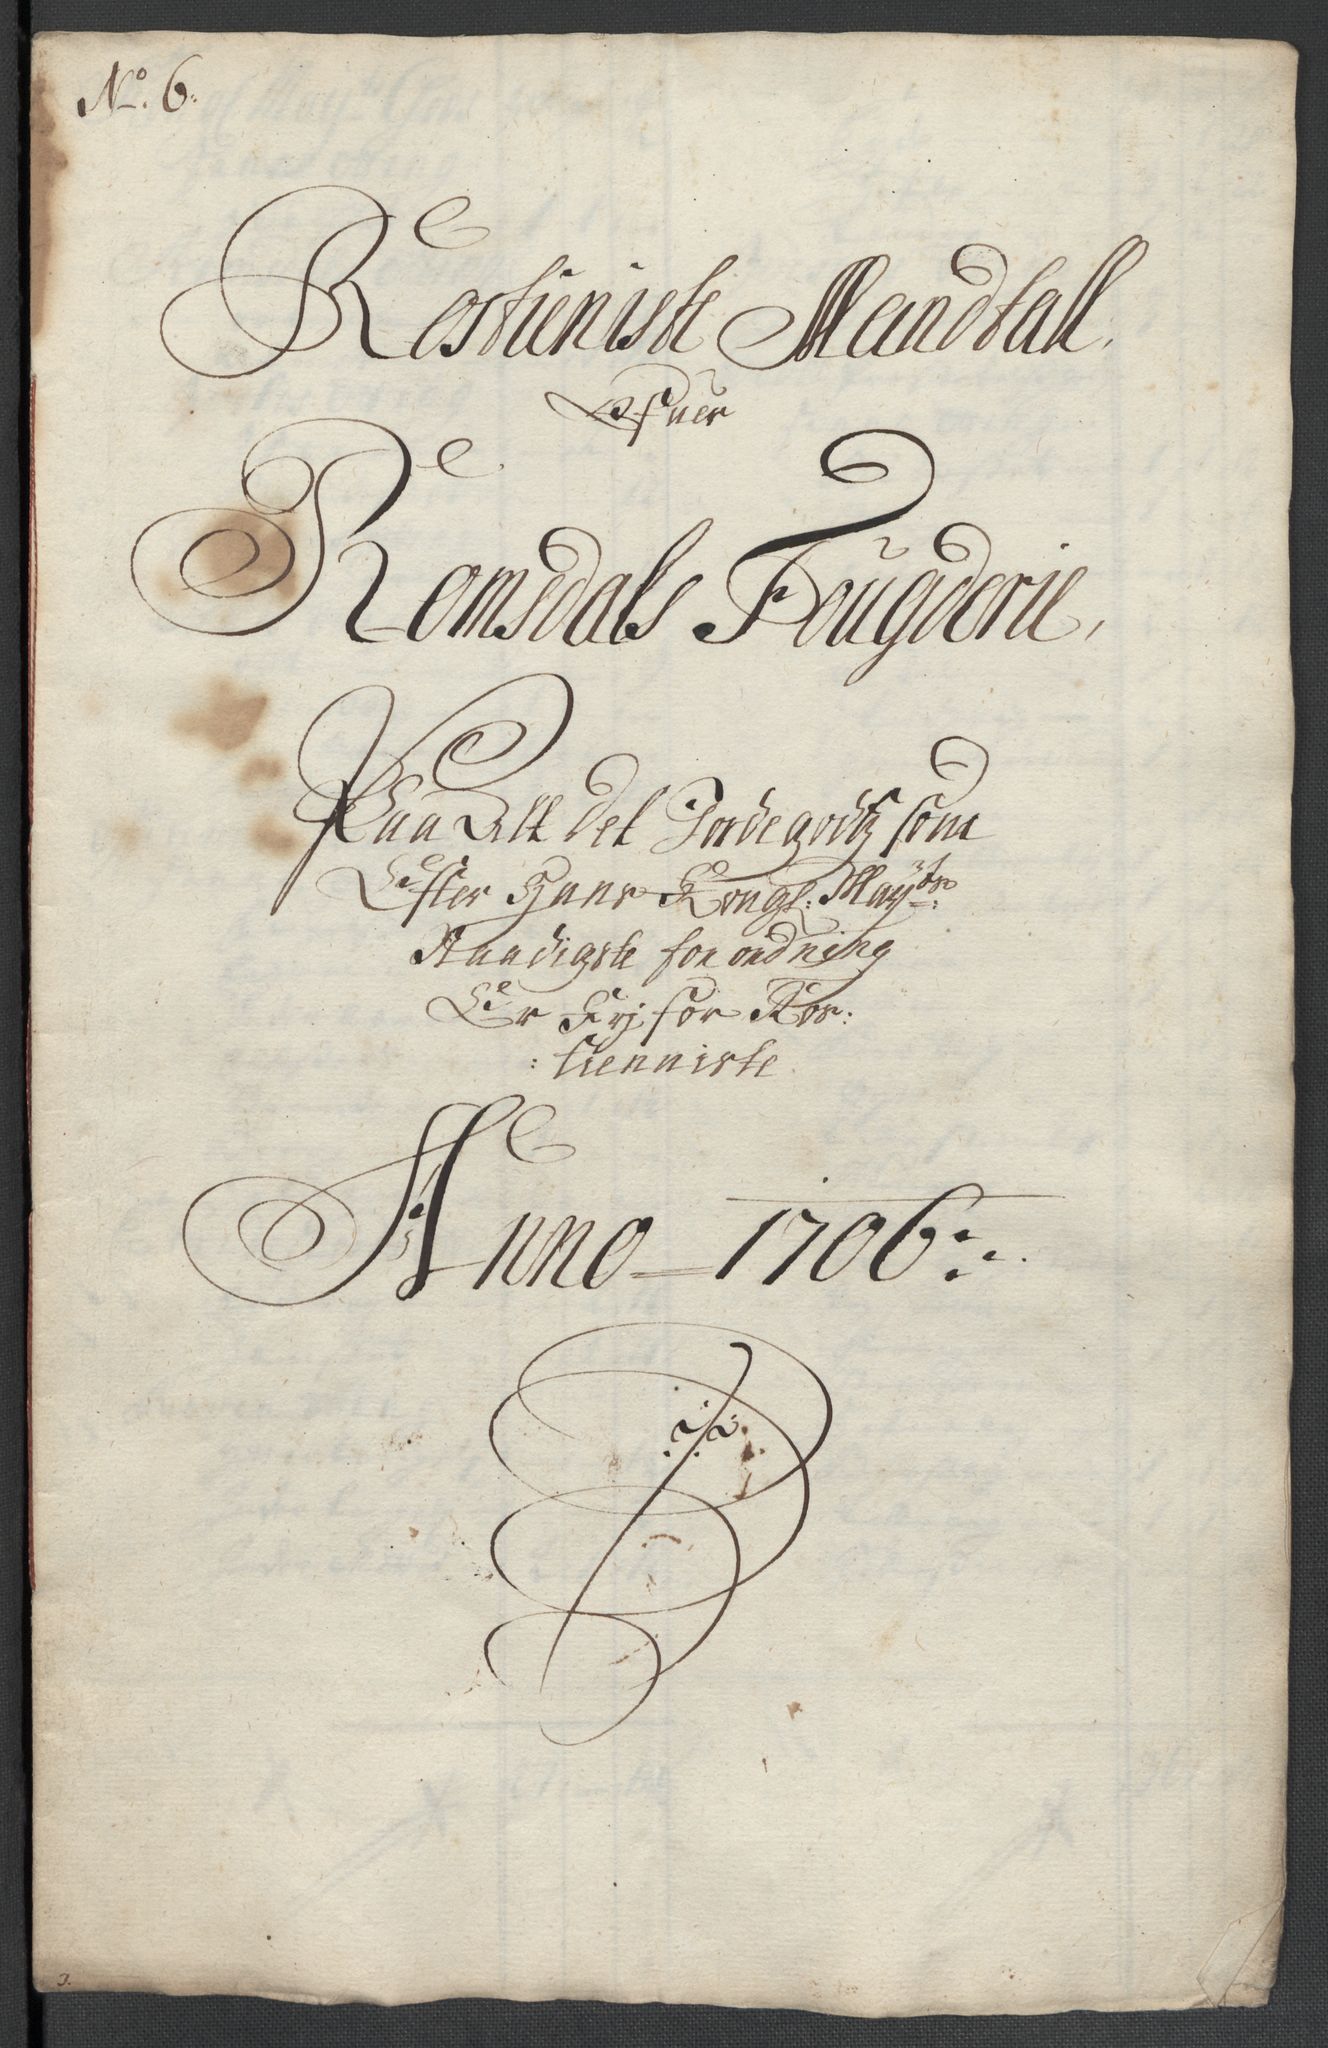 No. 6.
Rostieniste Mandtall.
Ofuer
Romsdals Fougderie,
Paa Alt det Jordegodtz som
Efter Hans Kongl: Mayts:
Naadigste forordning
Er Frj for Ros:
:tienniste
Anno 1706